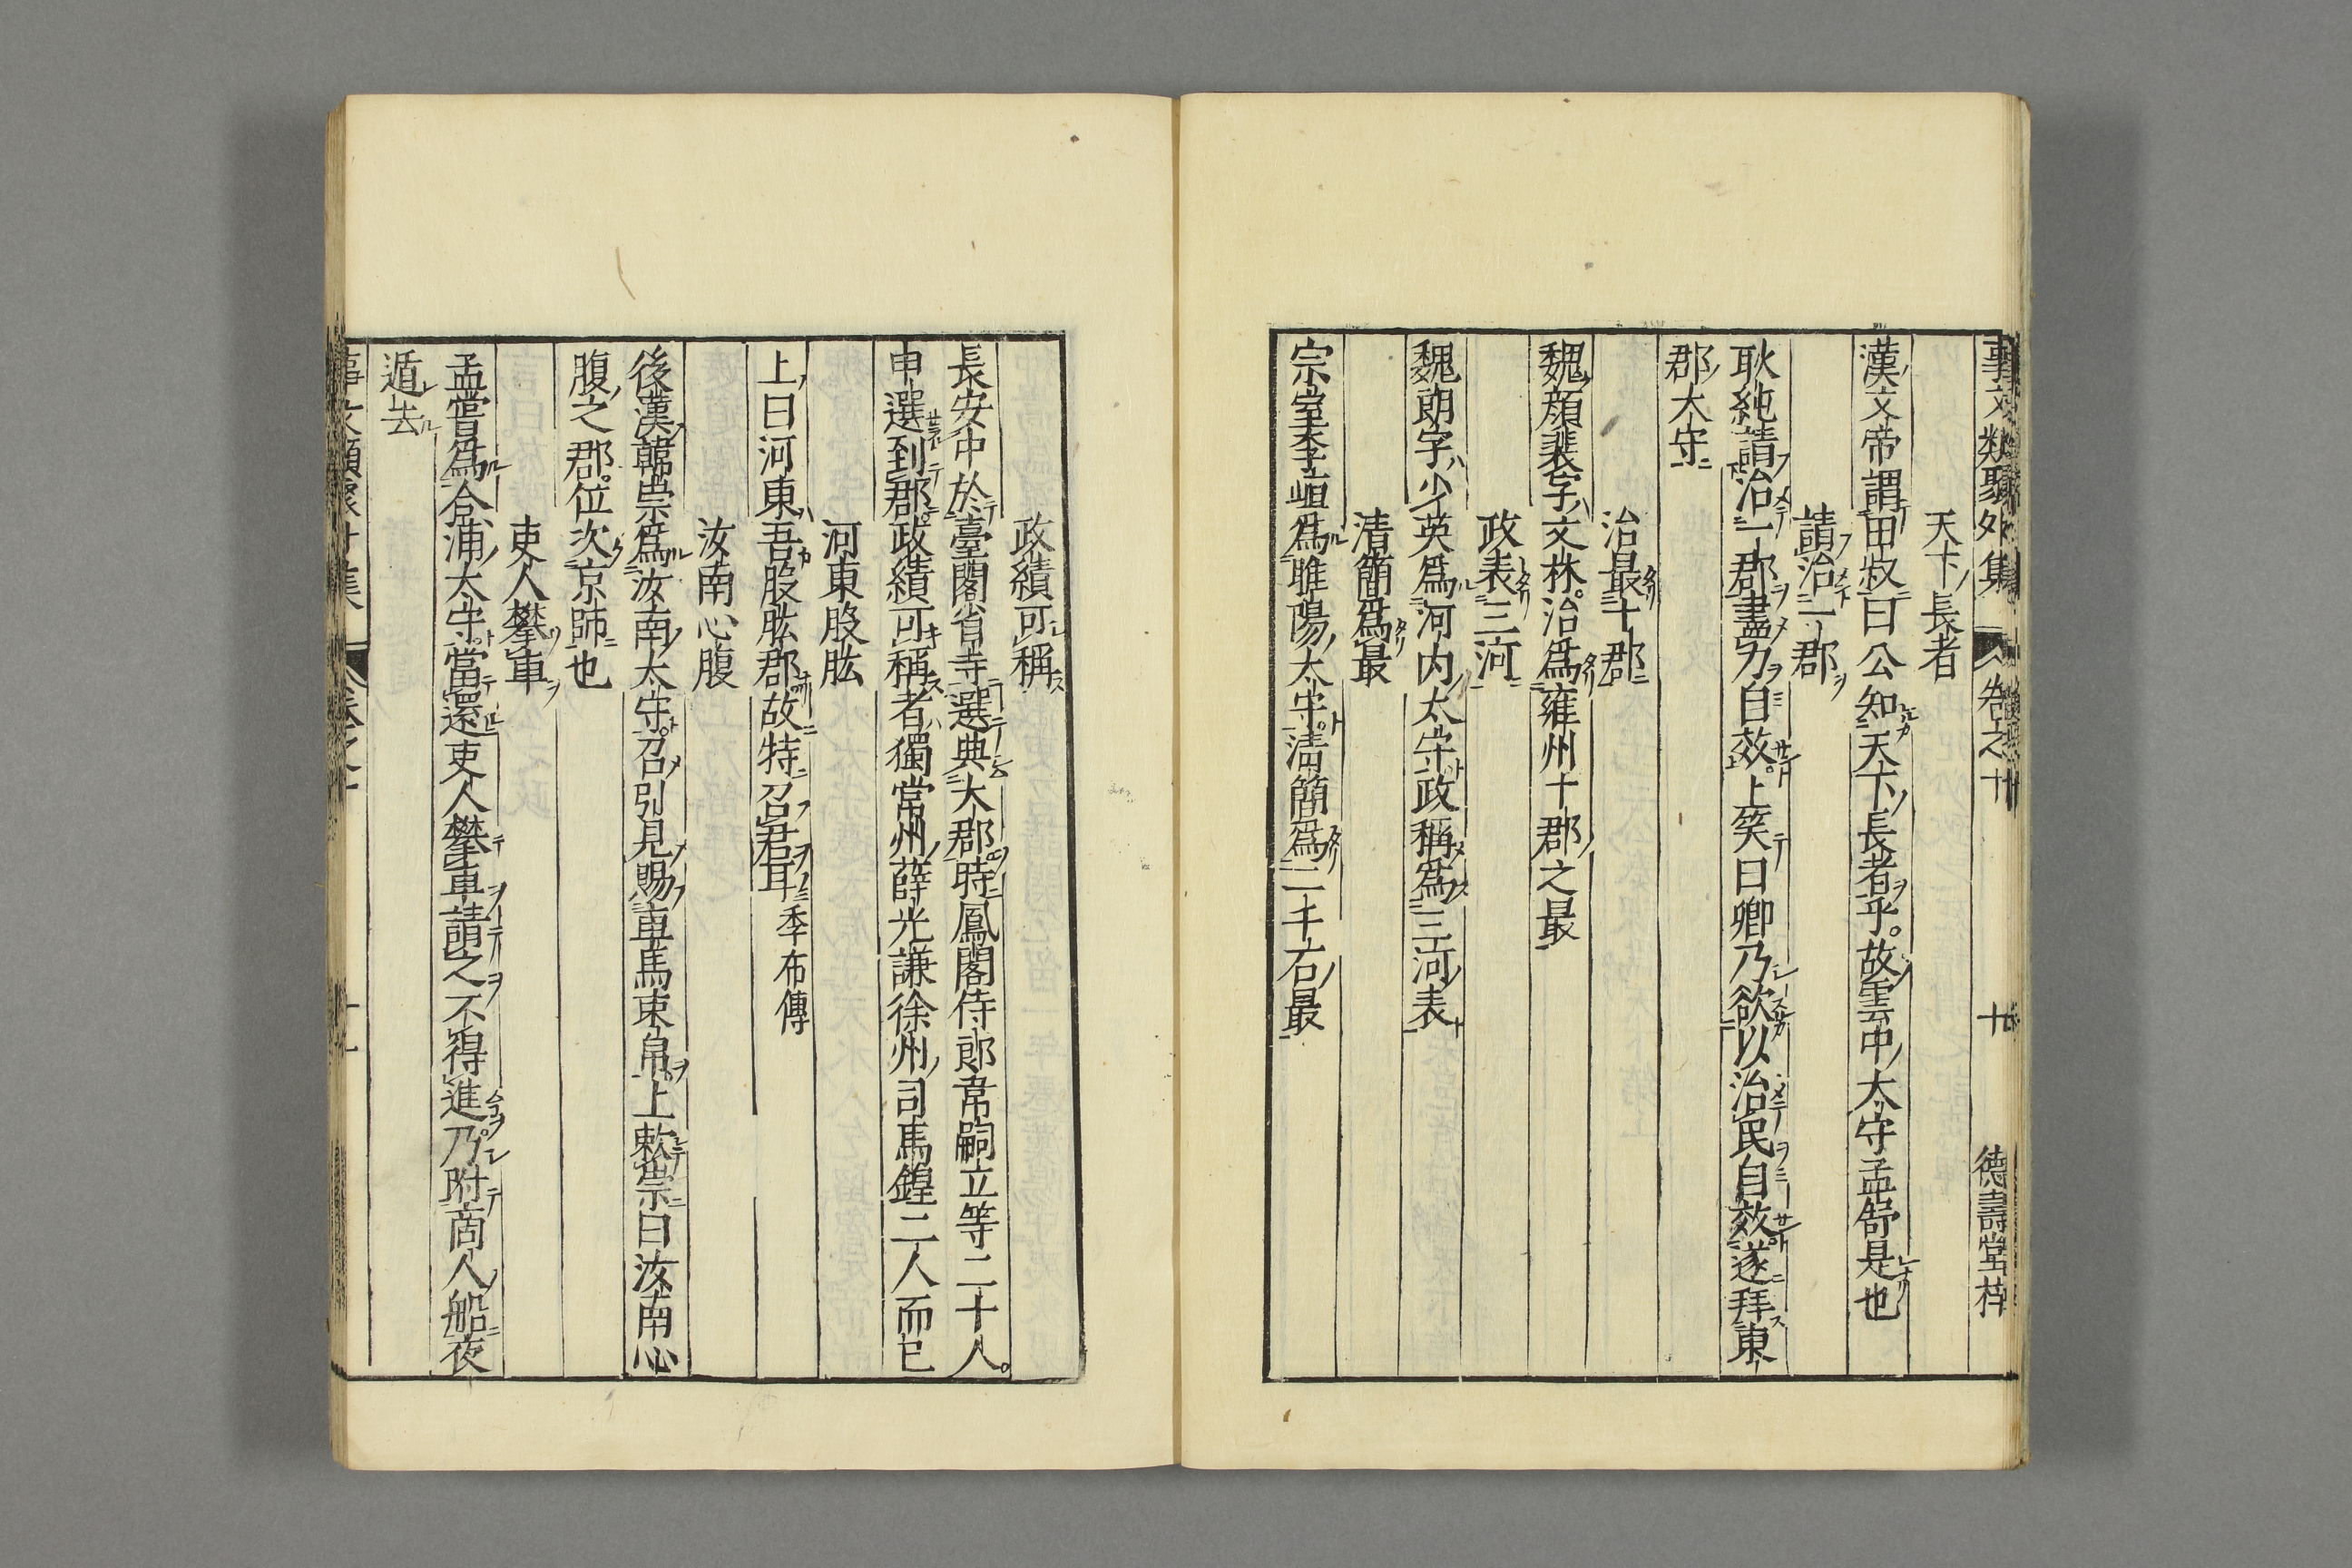 事文類聚外集 卷之十 十 德壽堂梓
天下長者
漢文帝謂田叔曰公知天下長者乎故雲中太守孟舒是也
請治一郡
耿純請治一郡盡力自效上笑曰卿乃欲以治民自效遂拜東
郡太守
治最十郡
魏顔裴字文林治爲雍州十郡之最
政表三河
魏朗字少英爲河内太守政稱爲三河表
清簡爲最
宗室李峘爲睢陽太守清簡爲二千石最
政績可稱
長安中於臺閣省寺選典大郡時鳳閣侍郎韋嗣立等二十人
申選到郡政績可稱者獨常州薛光謙徐州司馬鍠二人而已
河東股肱
上曰河東吾股肱郡故特召君耳季布傳
汝南心腹
後漢韓崇爲汝南太守召引見賜車馬束帛上敕崇曰汝南心
腹之郡位次京師也
吏人攀車
孟嘗爲合浦太守當還吏人攀車請之不得進乃附商人船夜
遁去
事文類聚外集 卷之十